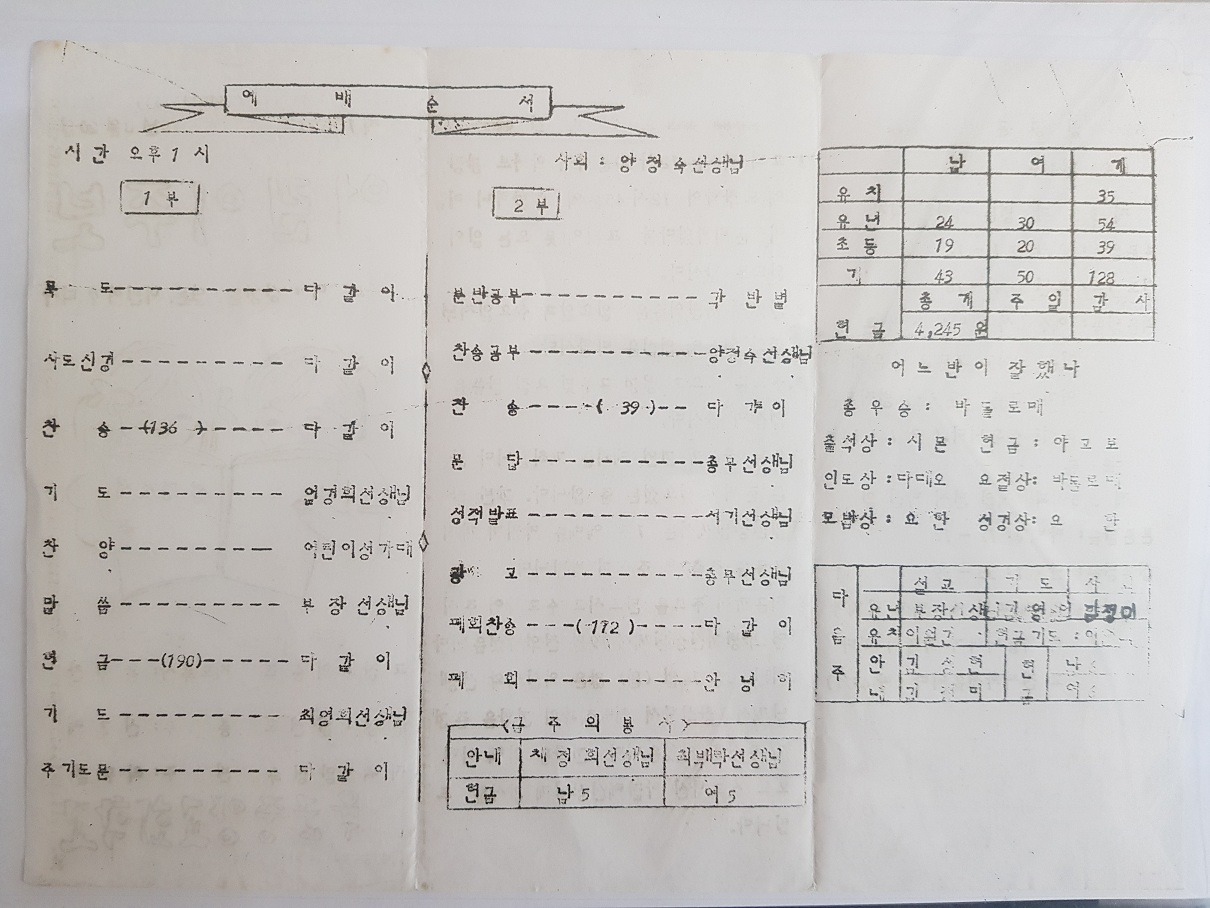 예 배 순 서
시간 오후 1 시
사회 : 양정숙선생님
1 부
묵 도 - - - - - - - - - - - 다 같 이
사도신경 - - - - - - - - - 다 같 이
찬 송 - (136 ) - - - - - 다 같 이
기 도 - - - - - - - - - - 엄경희선생님
찬 양 - - - - - - - - - 어린이성가대
말 씀 - - - - - - - - - - 부 장 선생님
헌 금 - - - (190) - - - - - 다 같 이
기 도 - - - - - - - - - - 최영희선생님
주기도문 - - - - - - - - - 다 같 이
2 부
분반공부 - - - - - - - - - - - 각 반 별
찬송공부 - - - - - - - - - - 양정숙선생님
찬 송 - - - - ( 39 ) - - 다 같 이
문 답 - - - - - - - - - - 총무선생님
성적발표 - - - - - - - - - - 서기선생님
광 고 - - - - - - - - - - 총무선생님
폐회찬송 - - - ( 112 ) - - - - 다 같 이
폐 회 - - - - - - - - - - 안 녕 히
금 주 의 봉 사
안내 채 정 희선생님 최백락선생님
헌금 남 5 여 5
남 여 계
유 치 35
유 년 24 30 54
초 등 19 20 39
계 43 50 128
총 계 주 일 감 사
헌 금 4,245 원
어 느 반 이 잘 했 나
총 우 승 : 바 돌 로 매
출석상 : 시 몬 헌 금 : 야 고 보
인도상 : 다대오 요절상 : 바돌로매
모범상 : 요 한 성경상 : 요 한
다 음 주
설 교 기 도 사 회
유년 부장
유치 헌금기도 :
안 내 김 성 현 헌 금 남
여